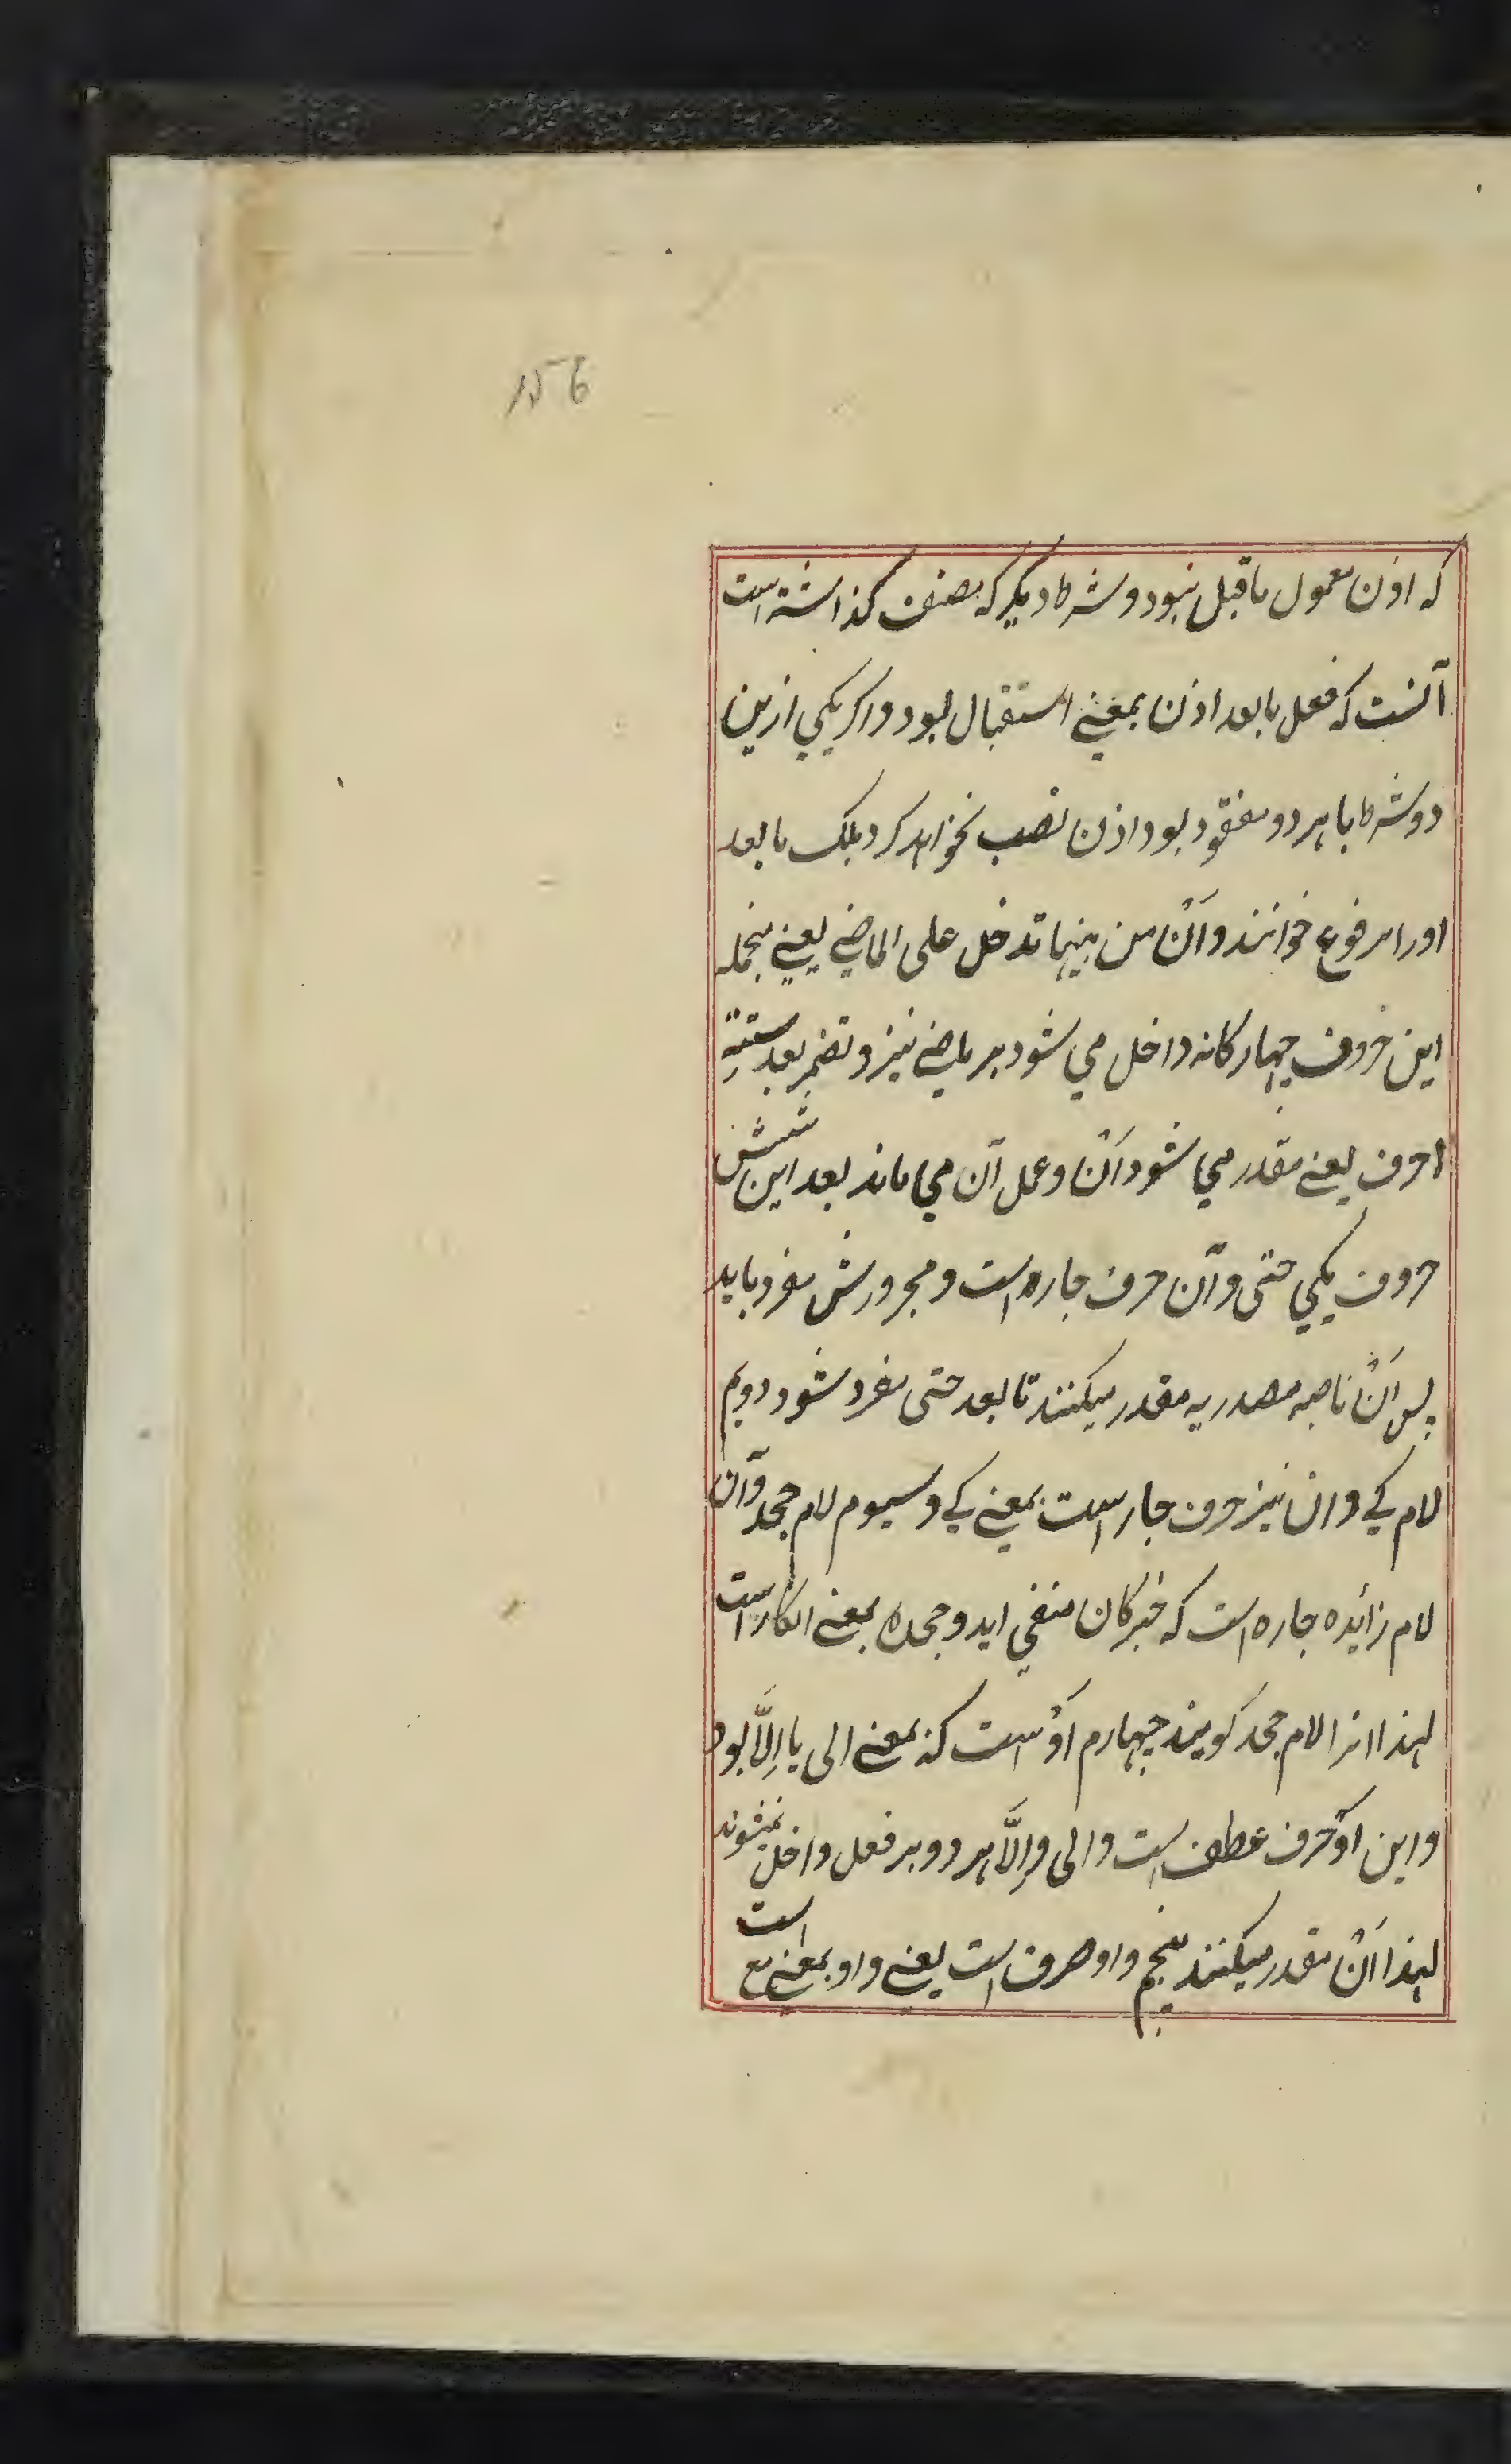 156
که اذن معمول ماقبل نبود و شرط دیکر که مصنف کذاشته است
آنست که فعل مابعد اذن بمعنی استقبال بود و اکر یکی ازین
دو شرط یا هر دو مفقود بود اذن نصب نخواهد کرد بلک مابعد
اورا مرفوع خوانند و اَنْ من بینها تدخل علی الماضی یعنی منجمله
این حروف چهارکانه داخل می شود بر ماضی نیز و تضمر بعد ستةِ
احرف یعنی مقدر می شود اَنْ و عمل آن می ماند بعد این شش
حروف یکی حتی و آن حرف جاره است و مجرورش مفرد باید
پس اَنْ ناصبه مصدریه مقدر میکنند تا بعد حتی مفرد شود دویم
لام کی و ان نیز حرف جار است بمعنی کی و سیوم لام جحد و آن
لام زائده جاره است که خبر کان منفی اید و جحد بمعنی انکار است
لهذا انرا لام جحد کویند چهارم اَوْ است که بمعنی الی یا اِلَّا بود
و این اَوْ حرف عطف است و الی و اِلَّا هر دو بر فعل داخل نمیشوند
لهذا اَنْ مقدر میکنند پنجم واو صرف است یعنی واو بمعنی مع است